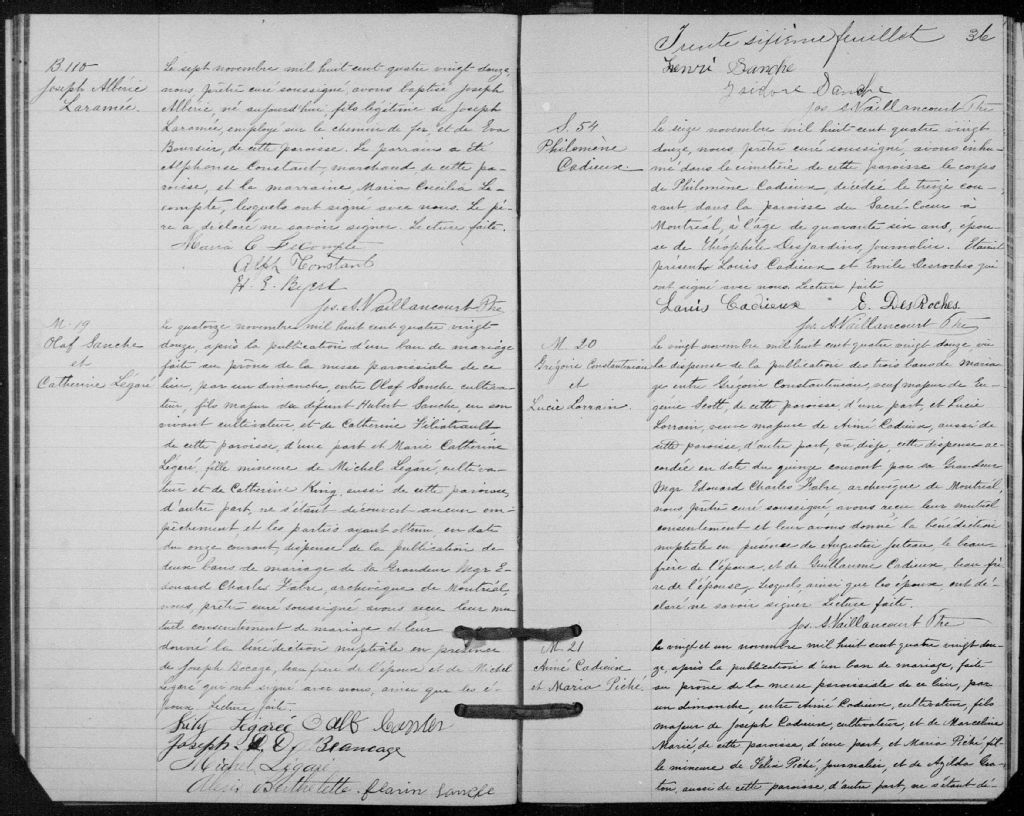 B. 110
Joseph Albéric
Laramée.
Le sept novembre mil huit cent quatre vingt douze,
nous prêtre curé soussigné, avons baptisé Joseph
Albéric né aujourd'hui, fils légitime de Joseph
Laramée, employé sur le chemin de fer, et de Eva
Boursier, de cette paroisse. Le parrain a été
Alphonse Constant, marchand, de cette pa-
roisse, et la marraine, Maria Coecilia Le-
compte, lesquels ont signé avec nous. Le pè-
re a déclaré ne savoir signer. Lecture faite.
Maria C. LeCompte
Alph Constant
Jos. A. Vaillancourt Ptre
M. 19
Olaf Sanche
et
Catherine Légaré
Le quatorze novembre mil huit cent quatre vingt
douze, après la publication d'un ban de mariage
faite au prône de la messe paroissiale de ce
lieu, par un dimanche, entre Olaf Sanche cultiva-
teur, fils majeur du défunt Hubert Sanche, en son
vivant cultivateur et de Catherine Filiatrault,
de cette paroisse, d'une part et Marie Catherine
Légaré, fille mineure de Michel Légaré, cultiva-
teur et de Catherine King, aussi de cette paroisse,
d'autre part, ne s'étant découvert aucun em-
pêchement et les parties ayant obtenu, en date
du onze courant, dispense de la publication de
deux bans de mariage de Sa Grandeur Mgr E-
douard Charles Fabre, archevêque de Montréal,
nous, prêtre curé soussigné avons reçu leur mu-
tuel consentement de mariage et leur
donné la bénédiction nuptiale en présence
de Joseph Bocage, beau frère de l'époux et de Michel
Légaré qui ont signé avec nous, ainsi que les é-
poux. Lecture faite.
Joseph Beaucage
Michel Légaré
Alexis Berthelette Florin Sanche
Trente sixième feuillet 36
Henri Sanche
Isidore Sanche
Jos. A. Vaillancourt Ptre
S. 54
Philomène
Cadieux
Le seize novembre mil huit cent quatre vingt
douze, nous prêtre curé soussigné, avons inhu-
mé dans le cimetière de cette paroisse le corps
de Philomène Cadieux, décédée le treize cou-
rant, dans la paroisse du Sacré Coeur à
Montréal, à l'âge de quarante six ans, épou-
se de Théophile Desjardins, journalier. Etaient
présents Louis Cadieux et Emile Desroches qui
ont signé avec nous. Lecture faite
Louis Cadieux E. DesRoches
Jos A. Vaillancourt Ptre
M. 20
Grégoire Constantineau
et
Lucie Lorrain.
Le vingt novembre mil huit cent quatre vingt douze, vu
la dispense de la publication des trois bans de maria-
ge entre Grégoire Constantineau, veuf majeur de Eu-
génie Scott, de cette paroisse, d'une part, et Lucie
Lorrain, veuve majeure de Aimé Cadieux, aussi de
cette paroisse, d'autre part, cette dispense ac-
cordée en date du quinze courant par sa Grandeur
Mgr Edouard Charles Fabre archevêque de Montréal,
nous prêtre curé soussigné, avons reçu leur mutuel
consentement et leur avons donné la bénédiction
nuptiale en présence de Augustin Juteau, le beau-
frère de l'époux, et de Guillaume Cadieux, beau frè-
re de l'épouse, lesquels, ainsi que les époux ont dé-
claré ne savoir signer. Lecture faite.
Jos. A. Vaillancourt Ptre
M. 21
Aimé Cadieux
et Maria Piché.
Le vingt et un novembre mil huit cent quatre vingt dou-
ze, après la publication d'un ban de mariage, faite
au prône de la messe paroissiale de ce lieu, par
un dimanche, entre Aimé Cadieux, cultivateur, fils
majeur de Joseph Cadieux, cultivateur, et de Marceline
Marié, de cette paroisse, d'une part, et Maria Piché, fil-
le mineure de Félix Piché, journalier, et de Azilda
aussi de cette paroisse, d'autre part, ne s'étant dé-